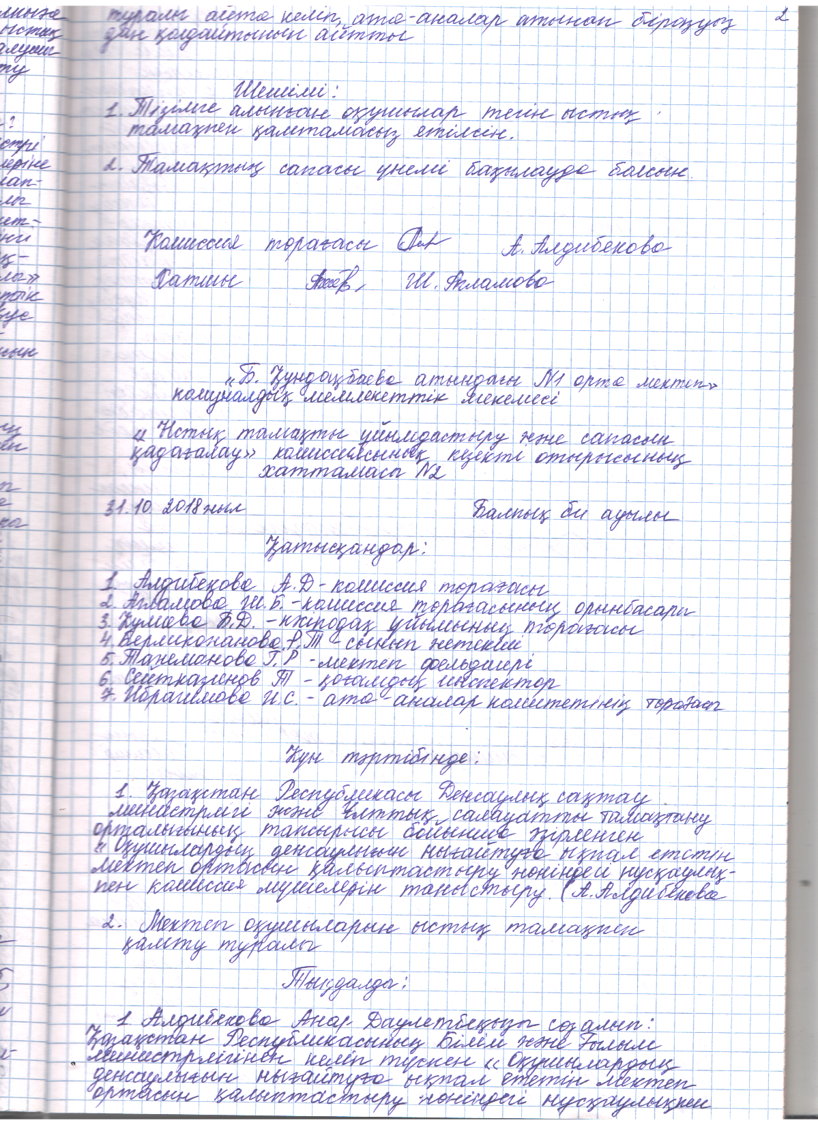 туралы айта келіп, ата-аналар атынан бірауыз 2
дан қолдайтынын айтты
Шешімі:
1. Тізімге алынған оқушылар тегін ыстық
тамақпен қамтамасыз етілсін.
2. Тамақтың сапасы үнемі бақылауда болсын.
Комиссия төрағасы А. Алдибекова
Хатшы Ш. Акламова
„Б. Қундақбаева атындағы №1 орта мектеп»
комуналдық мемлекеттік мекемесі
„ Ыстық тамақты ұйымдастыру және сапасын
қадағалау» комиссиясының кезекті отырысының
хаттамасы №2
31.10.2018 жыл Балпық би ауылы
Қатысқандар:
1. Алдибекова А.Д - комиссия төрағасы
2. Акламова Ш.Б. - комиссия төрағасының орынбасары
3. Б.Д. - кәсіподақ ұйымының төрағасы
4. Р.Т - сынып жетекші
5. Г.Р - мектеп фельдшері
6. Т - қоғамдық инспектор
7. Ибрагимова И.С. - ата-аналар комитетінің төрағасы
Күн тәртібінде:
1. Қазақстан Республикасы Денсаулық сақтау
министрлігі және Ұлттық салауатты тамақтану
орталығының тапсырысы бойынша әзірленген
« Оқушылардың денсаулығын нығайтуға ықпал ететін
мектеп ортасын қалыптастыру жөніндегі нұсқаулық-
пен комиссия мүшелерін таныстыру. (А.Алдибекова
2. Мектеп оқушыларын ыстық тамақпен
қамту туралы
Тыңдалды:
1. Алдибекова Анар Даулетбекқызы сөз алып:
Қазақстан Республикасының Білім және Ғылым
министрлігінен келіп түскен « Оқушылардың
денсаулығын нығайтуға ықпал ететін мектеп
ортасын қалыптастыру жөніндегі нұсқаулықпен